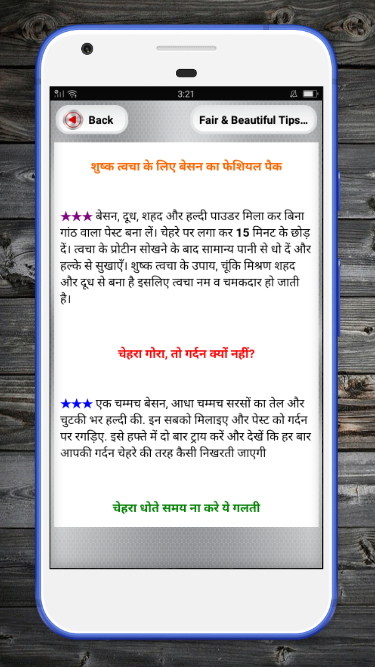 3:21
Back
Fair & Beautiful Tips...
शुष्क त्वचा के लिए बेसन का फेशियल पैक
★★★ बेसन, दूध, शहद और हल्दी पाउडर मिला कर बिना
गांठ वाला पेस्ट बना लें। चेहरे पर लगा कर 15 मिनट के छोड़
दें। त्वचा के प्रोटीन सोखने के बाद सामान्य पानी से धो दें और
हल्के से सुखाएँ। शुष्क त्वचा के उपाय, चूंकि मिश्रण शहद
और दूध से बना है इसलिए त्वचा नम व चमकदार हो जाती
है।
चेहरा गोरा, तो गर्दन क्यों नहीं?
★★★ एक चम्मच बेसन, आधा चम्मच सरसों का तेल और
चुटकी भर हल्दी की. इन सबको मिलाइए और पेस्ट को गर्दन
पर रगड़िए. इसे हफ्ते में दो बार ट्राय करें और देखें कि हर बार
आपकी गर्दन चेहरे की तरह कैसी निखरती जाएगी
चेहरा धोते समय ना करे ये गलती